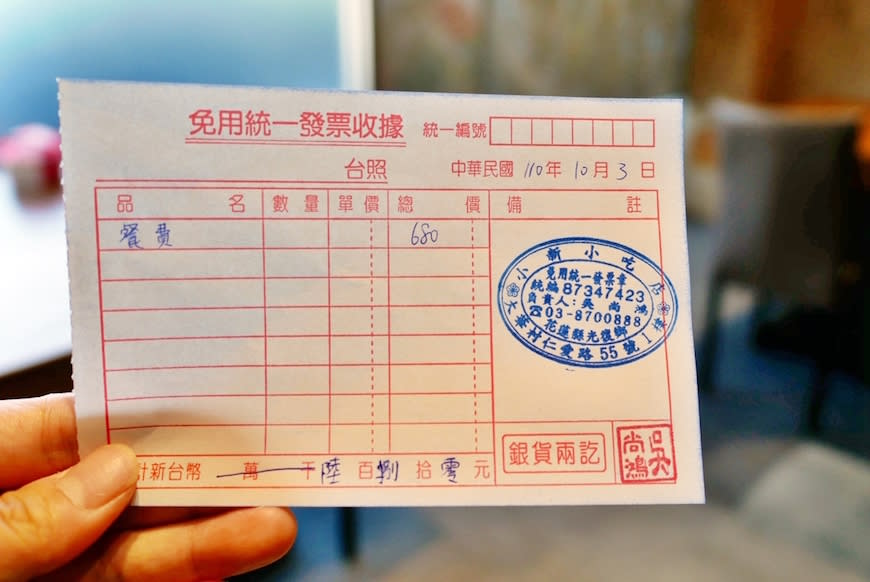 免用統一發票收據
統一編號
台照
中華民國 110年 10月 3日
品名 數量 單價 總價 備註
餐費 680
小新小吃店
免用統一發票章
統編87347423
負責人:吳尚鴻
☎03-8700888
花蓮縣光復鄉
大華村仁愛路55號1樓
銀貨兩訖
吳尚鴻
計新台幣 萬 千陸百捌拾零元